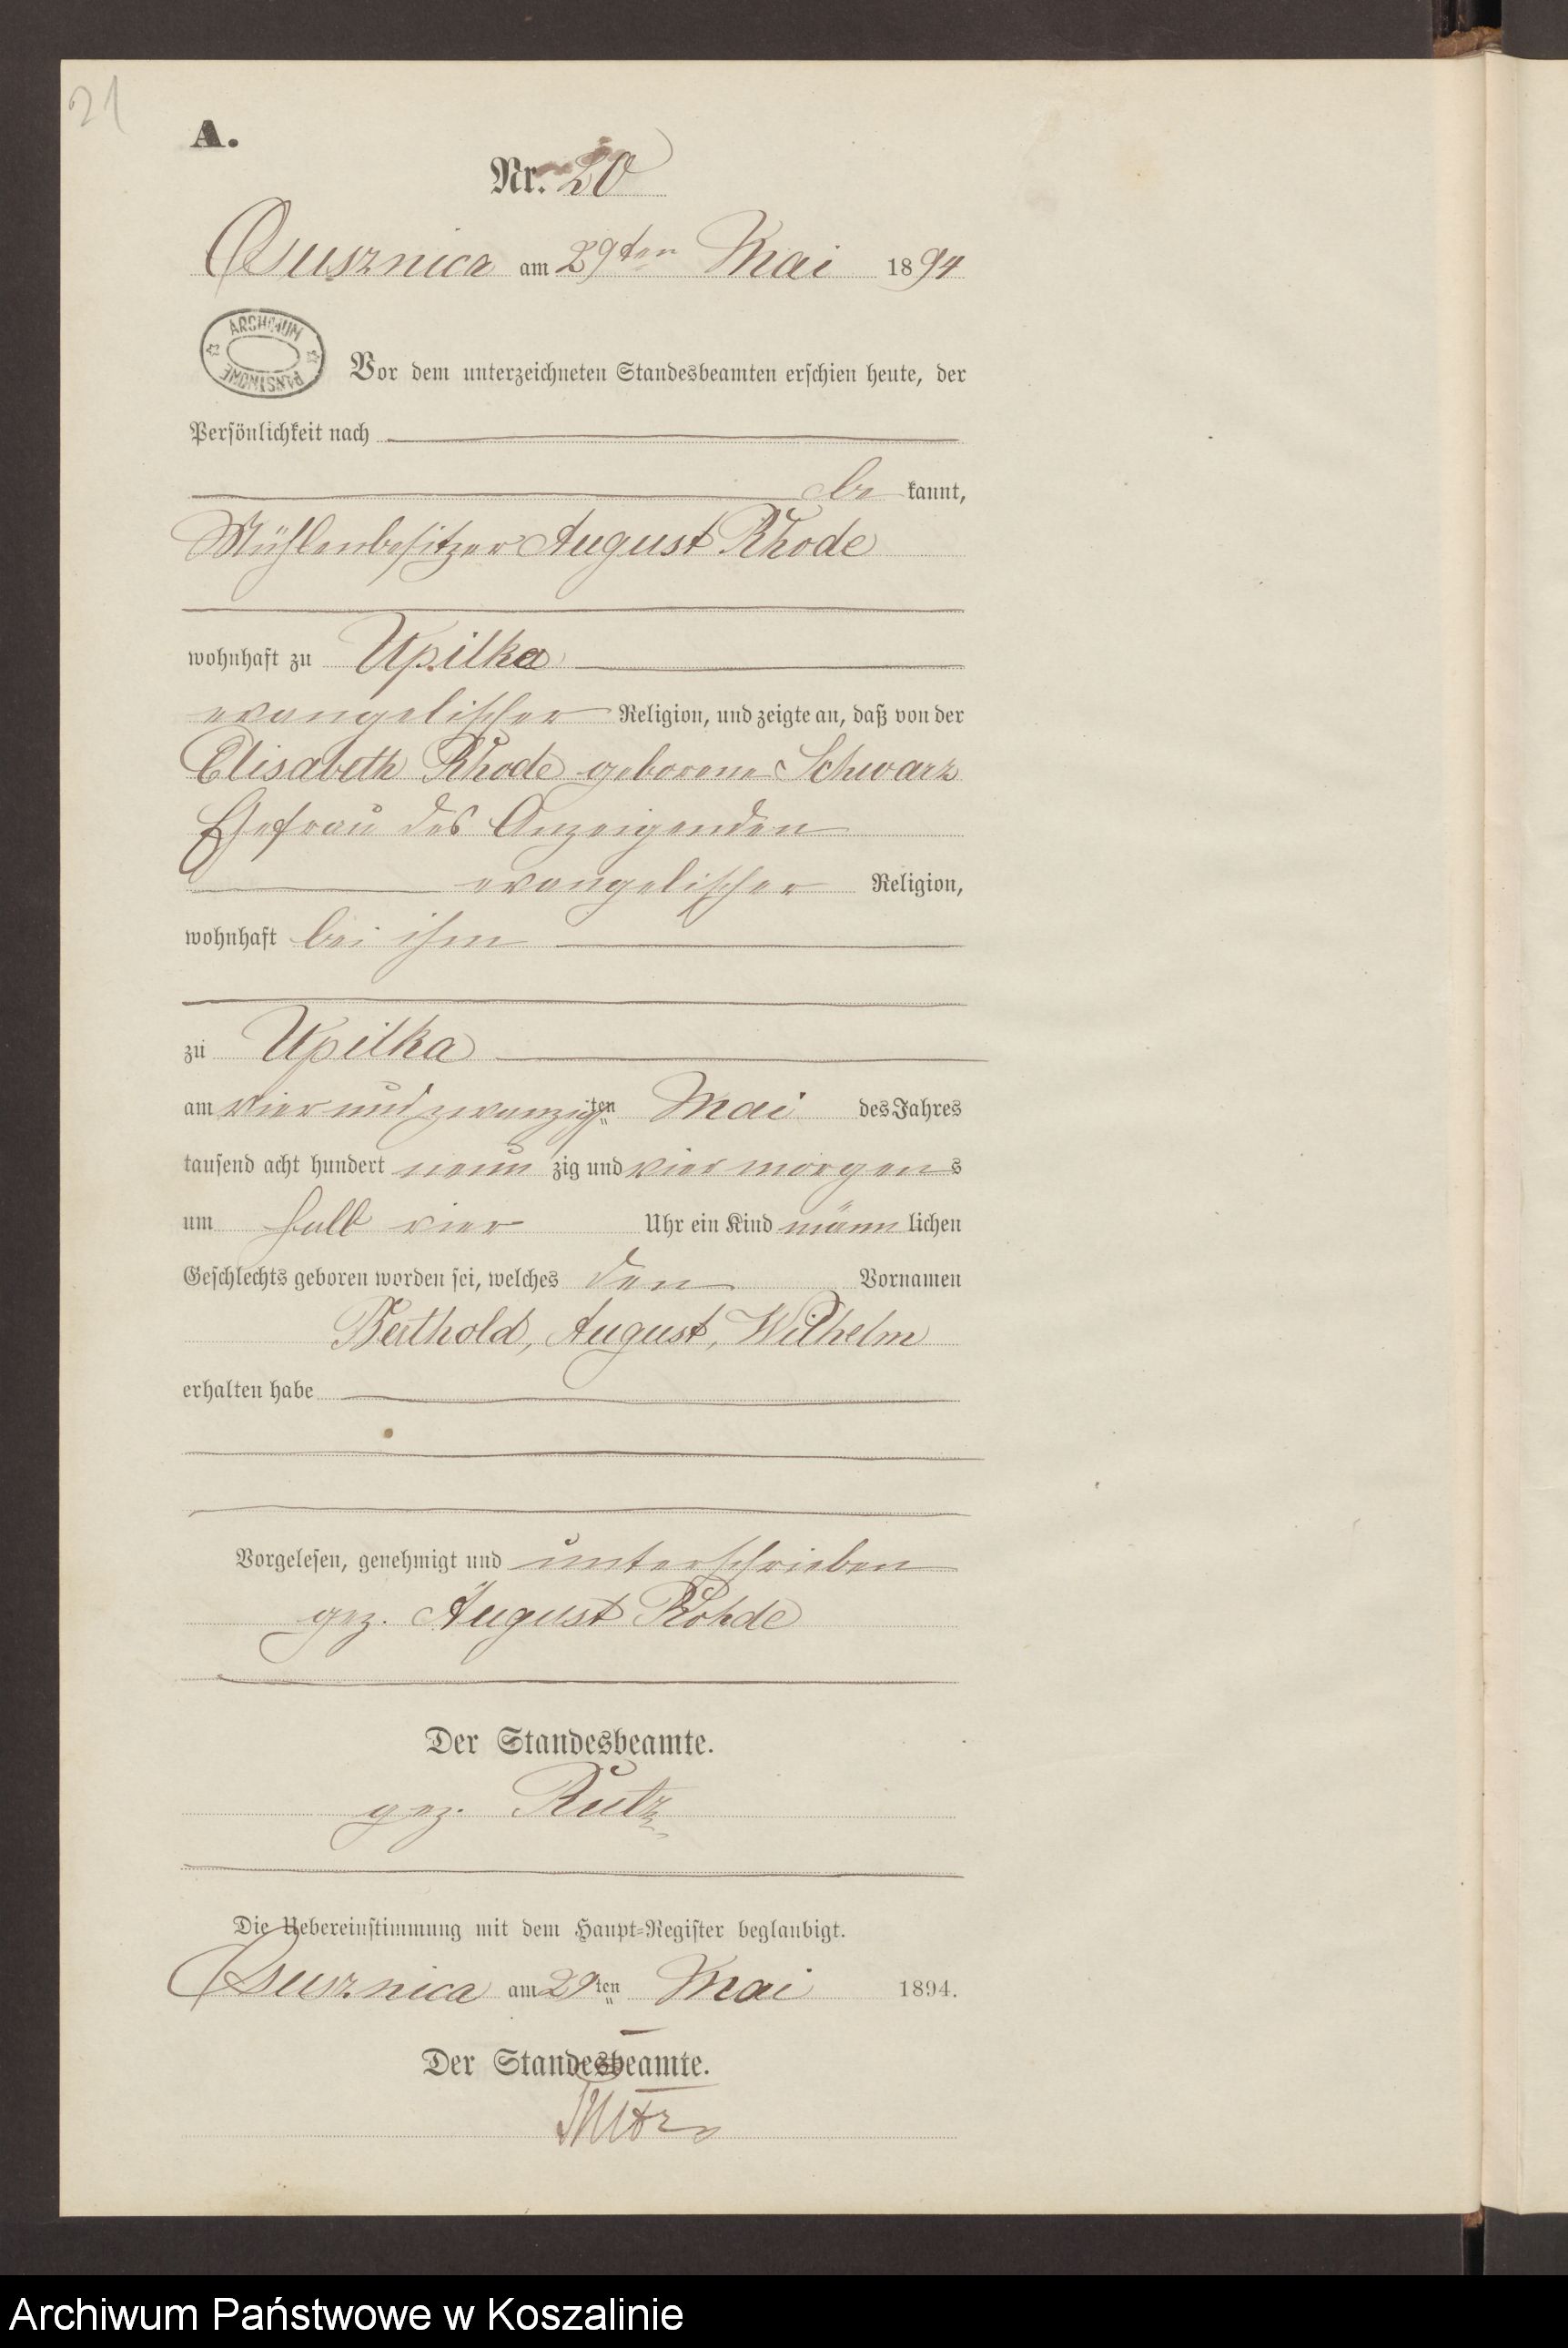 21
A.
Nr. 20
Osusznica am 29ten Mai 1894
ARCHIWUM
PAŃSTWOWE
Vor dem unterzeichneten Standesbeamten erschien heute, der
Persönlichkeit nach
be kannt,
Mühlenbesitzer August Rhode
wohnhaft zu Upilka
evangelischer Religion, und zeigte an, daß von der
Elisabeth Rhode geborene Schwarz
Ehefrau des Anzeigenden
evangelischer Religion,
wohnhaft bei ihm
zu Upilka
am vier und zwanzigsten Mai des Jahres
tausend acht hundert neun zig und vier morgens
um halb vier Uhr ein Kind männ lichen
Geschlechts geboren worden sei, welches den Vornamen
Berthold, August, Wilhelm
erhalten habe
Vorgelesen, genehmigt und unterschrieben
gez. August Rohde
Der Standesbeamte.
gez. Rutz
Die Uebereinstimmung mit dem Haupt-Register beglaubigt.
Osusznica am 29ten Mai 1894.
Der Standesbeamte.
Rutz
Archiwum Państwowe w Koszalinie